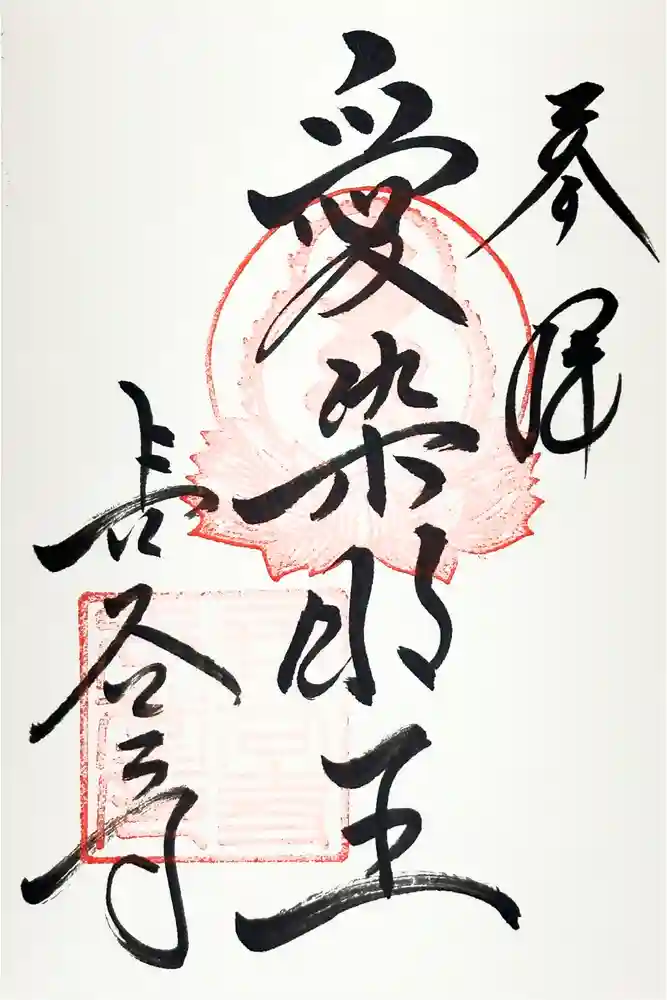 奉拝
愛染明王
長谷寺